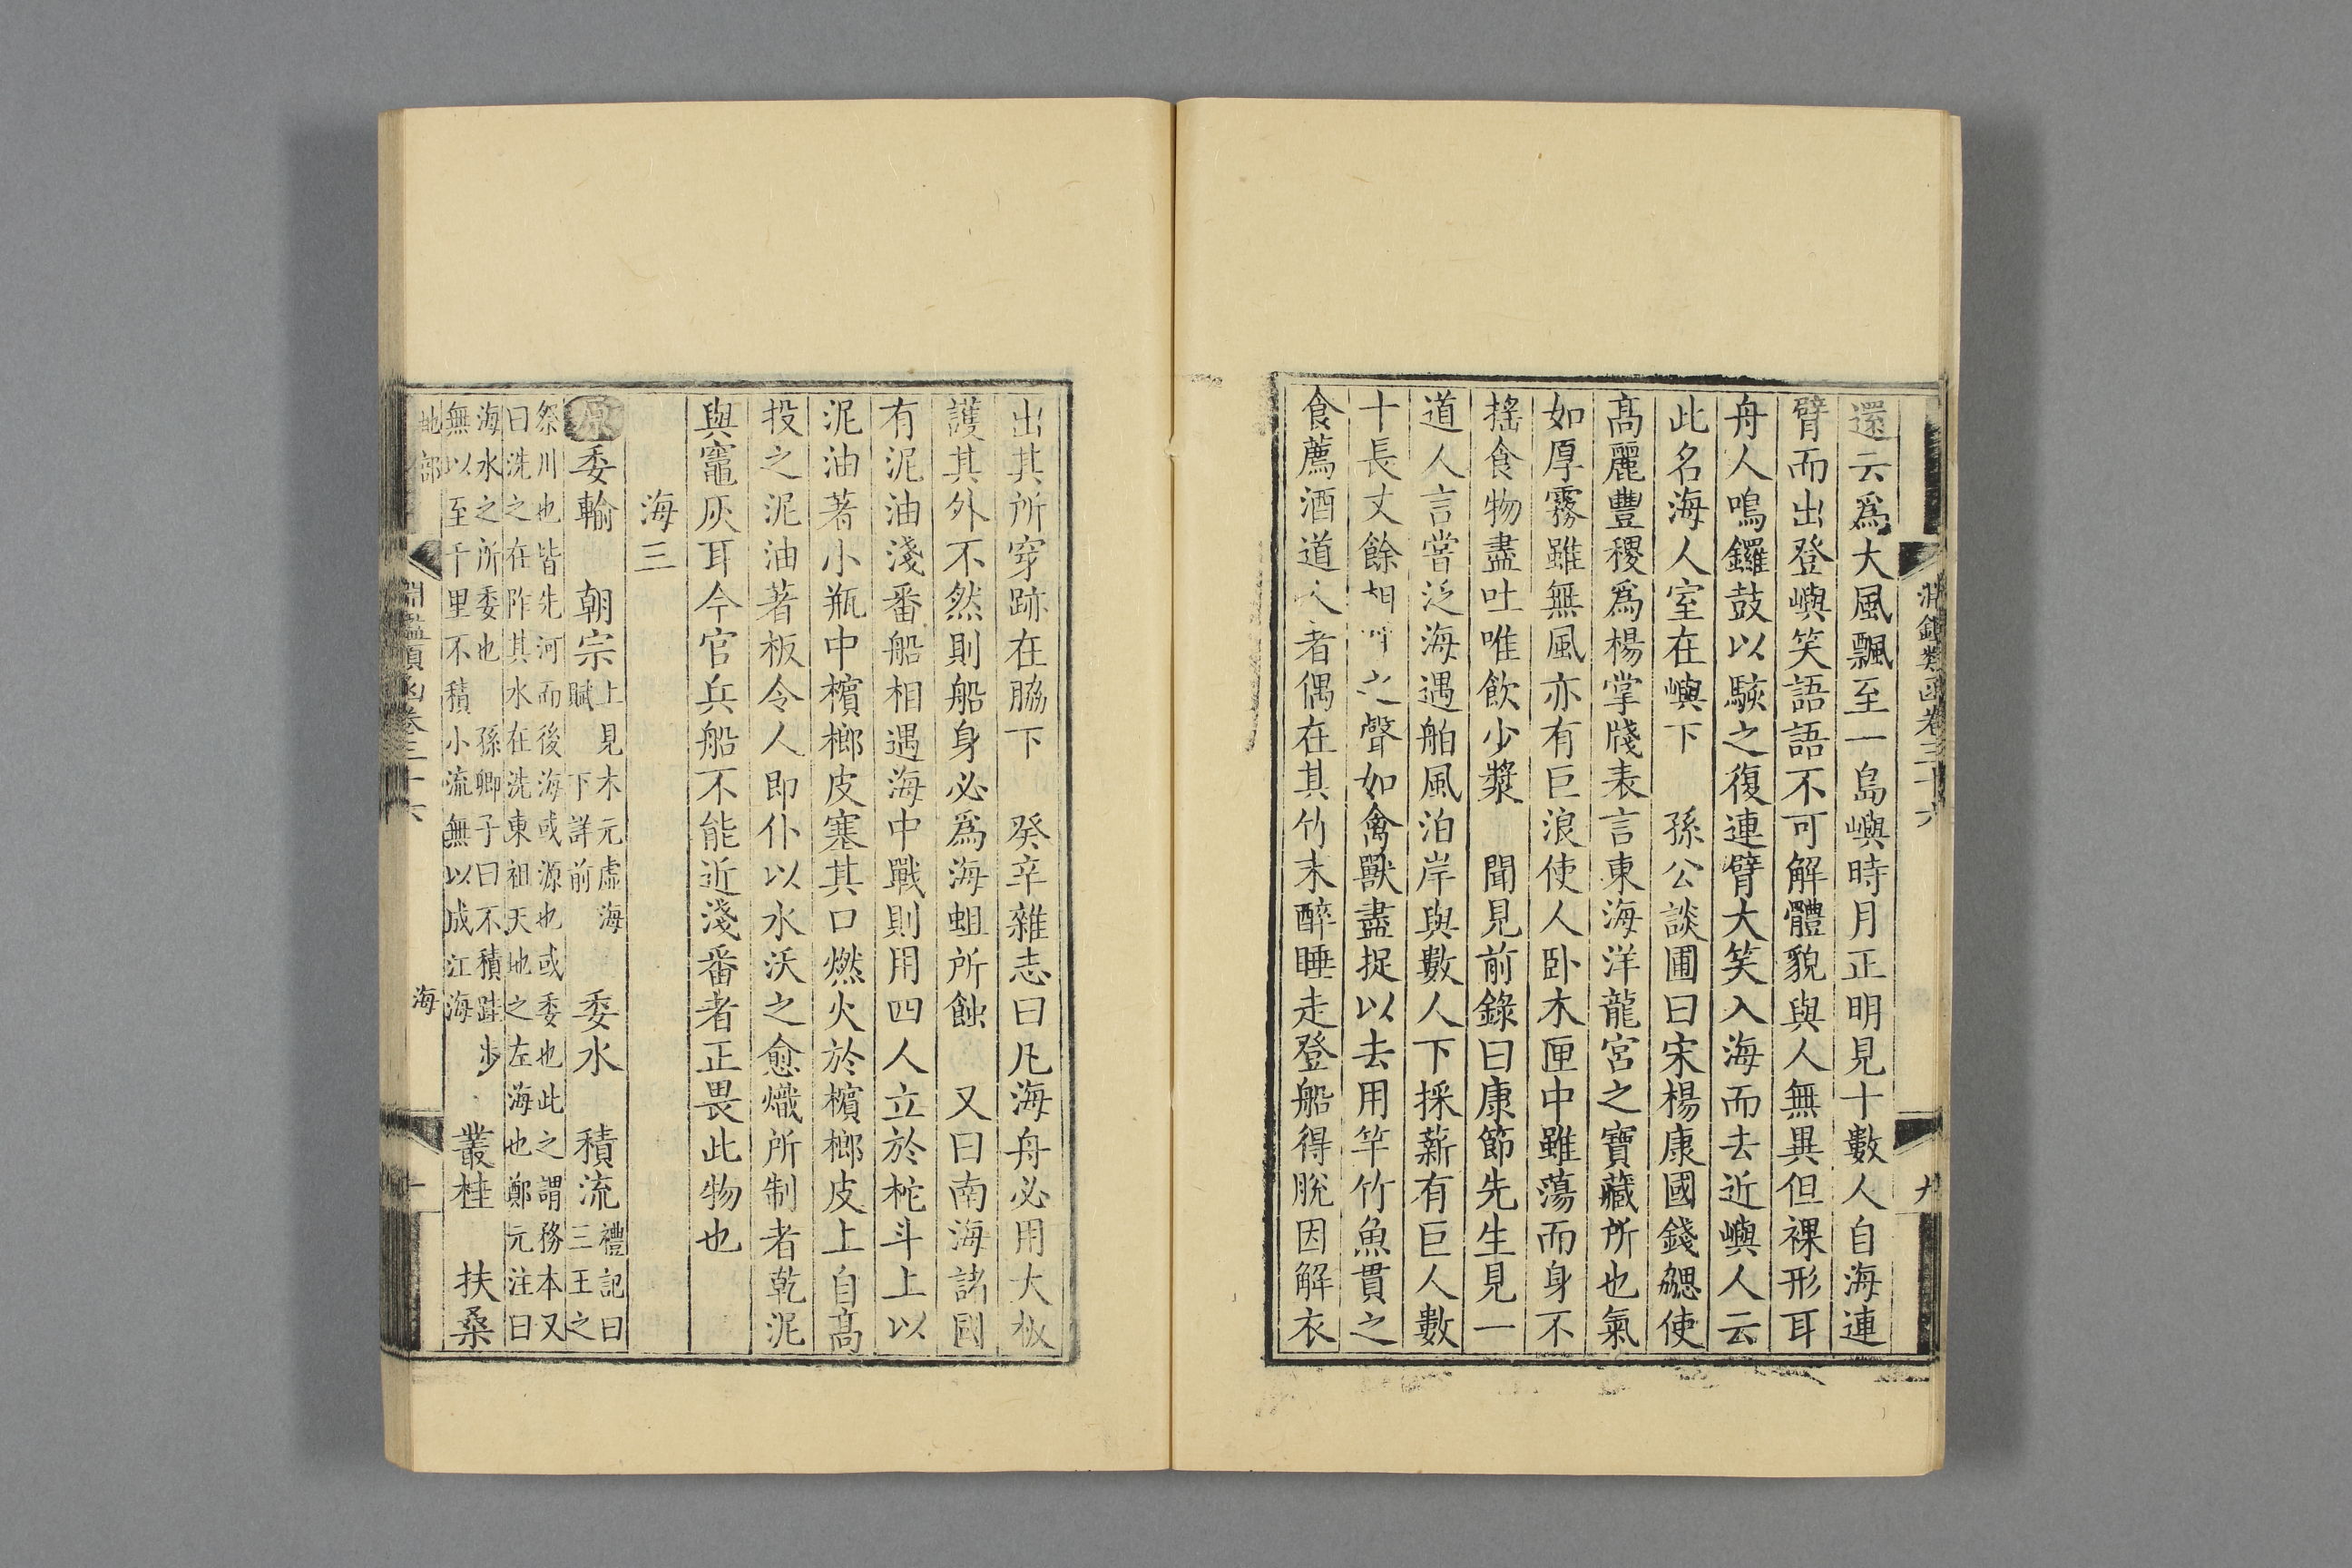 淵鑑類函卷三十六
九
還云爲大風飄至一島嶼時月正明見十數人自海連
臂而出登嶼笑語語不可解體貌與人無異但裸形耳
舟人鳴鑼鼓以駭之復連臂大笑入海而去近嶼人云
此名海人室在嶼下　孫公談圃曰宋楊康國錢勰使
高麗豐稷爲楊掌牋表言東海洋龍宮之寶藏所也氣
如厚霧雖無風亦有巨浪使人卧木匣中雖蕩而身不
搖食物盡吐唯飲少漿　聞見前錄曰康節先生見一
道人言嘗泛海遇舶風泊岸與數人下採薪有巨人數
十長丈餘相之聲如禽獸盡捉以去用竿竹魚貫之
食薦酒道人者偶在其竹末醉睡走登船得脫因解衣
出其所穿跡在脇下　癸辛雜志曰凡海舟必用大板
護其外不然則船身必爲海蛆所蝕　又曰南海諸國
有泥油淺番船相遇海中戰則用四人立於柁斗上以
泥油著小瓶中檳榔皮塞其口燃火於檳榔皮上自高
投之泥油著板令人即仆以水沃之愈熾所制者乾泥
與竈灰耳今官兵船不能近淺番者正畏此物也
海三
原委輸　朝宗上見木元虛海賦　下詳前　委水　積流禮記曰三王之
祭川也皆先河而後海或源也或委也此之謂務本又
曰洗之在阼其水在洗東祖天地之左海也鄭元注曰
海水之所委也　孫卿子曰不積跬步
無以至千里不積小流無以成江海　叢桂　扶桑
地部
淵鑑類函卷三十六
海
十